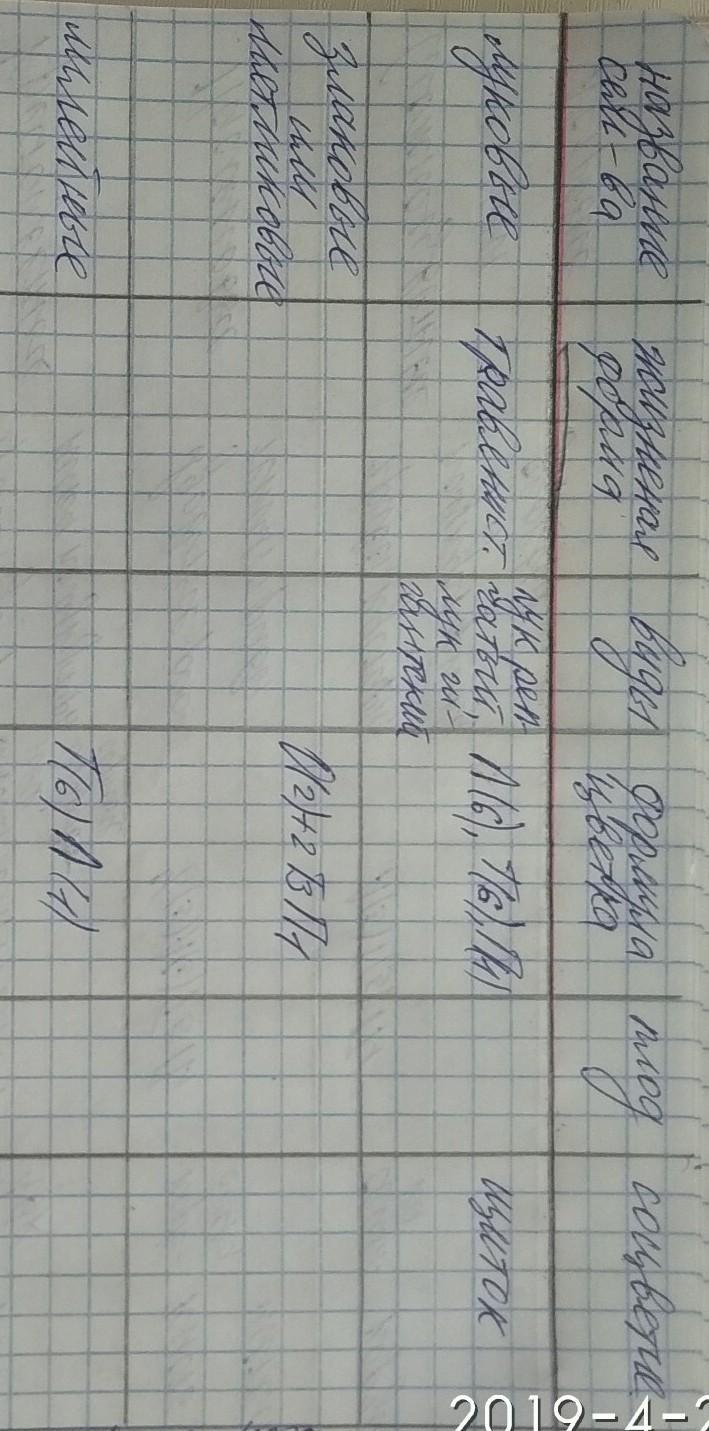 название
сем-ва
жизненая
форма
виды
формула
цветка
плод
соцветие
луковые
травенист.
лук реп-
чатый,
лук ги-
гантский
Л(6), Т(6), П(1)
щиток
Злаковые
или
мятликовые
О(2)+2 Т3 П1
лилейные
Т(6) П(1)
2019-4-2